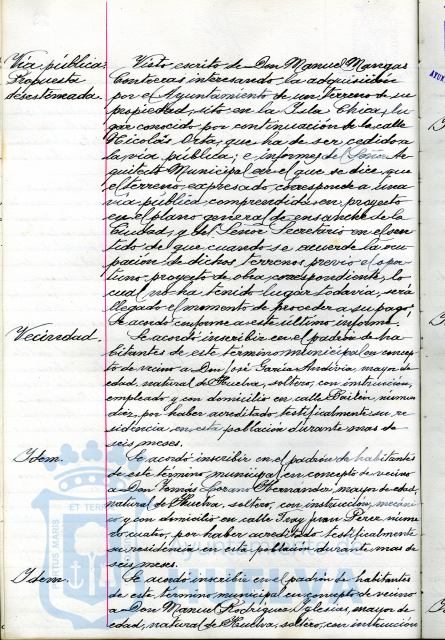 Vía pública. Propuesta desestimada.
Visto escrito de Don Manuel Mangas
Contreras interesando la adquisición
por el Ayuntamiento de un terreno de su
propiedad, sito en la Isla Chica, lu-
gar conocido por continuación de la calle
Nicolás Orta, que ha de ser cedido a
la vía pública; e informes del Señor Ar-
quitecto Municipal en el que se dice que
el terreno expresado corresponde a una
vía pública comprendida en proyecto
en el plano general de ensanche de la
Ciudad, y del Señor Secretario en el sen-
tido de que cuando se acuerde la ocu-
pación de dichos terrenos previo el opor-
tuno proyecto de obra correspondiente, lo
cual no ha tenido lugar todavía, será
llegado el momento de proceder a su pago.
Se acordó conforme a este último informe.
Vecindad.
Se acordó inscribir en el padrón de ha-
bitantes de este término municipal en concep-
to de vecino a Don José García Andivia, mayor de
edad, natural de Huelva, soltero, con instrucción,
empleado y con domicilio en calle Bailén, número
diez, por haber acreditado testificalmente su re-
sidencia en esta población durante mas de
seis meses.
Idem.
Se acordó inscribir en el padrón de habitantes
de este término municipal en concepto de vecino
a Don Tomás Lozano Hernández, mayor de edad,
natural de Huelva, soltero, con instrucción, mecáni-
co y con domicilio en calle Fray Juan Pérez núme-
ro cuatro, por haber acreditado testificalmente
su residencia en esta población durante mas de
seis meses.
Idem.
Se acordó inscribir en el padrón de habitantes
de este término municipal en concepto de vecino
a Don Manuel Rodríguez Iglesias, mayor de
edad, natural de Huelva, soltero, con instrucción
PORTUS MARIS
ET TERRAE
HUELVA
AYUN